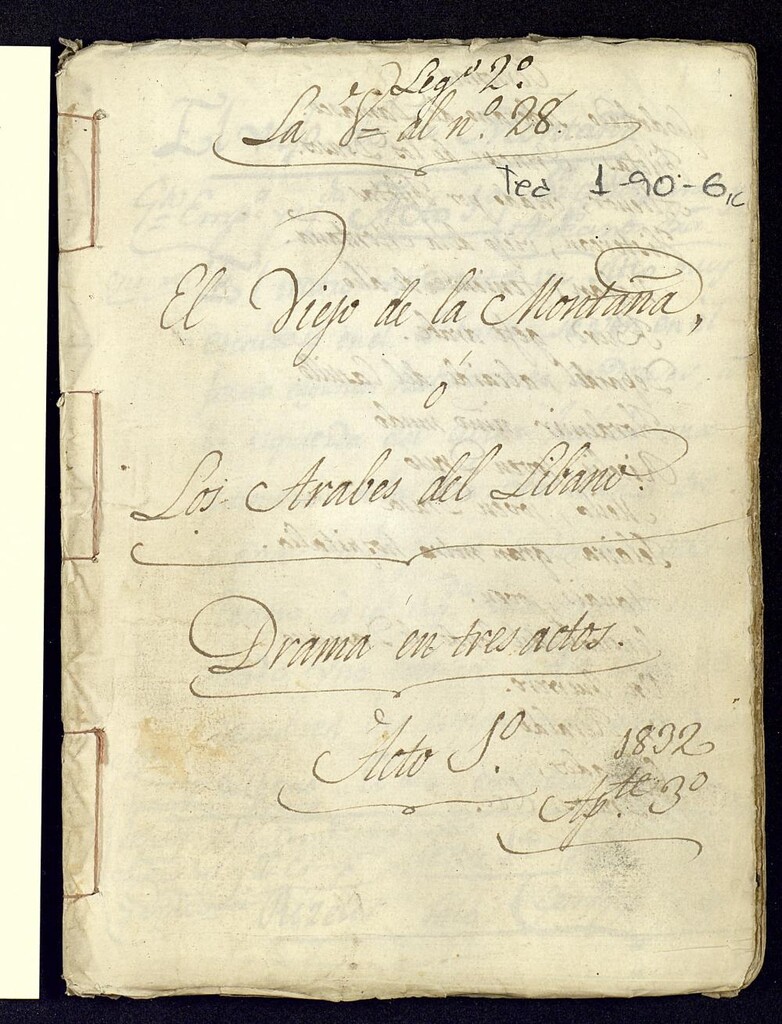 Leg.º 2.º
La V= al n.º 28.
Tea 1-90-6,c
El Viejo de la Montaña,
ó
Los Arabes del Libano.
Drama en tres actos.
Acto 1.º
1832
Ap.te 3º